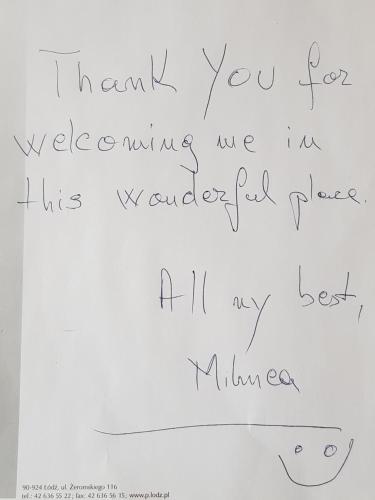 Thank You for
welcoming me in
this wonderful place.
All my best,
Mihnea
90-924 Łódź, ul. Żeromskiego 116
tel.: 42 636 55 22; fax: 42 636 56 15; www.p.lodz.pl